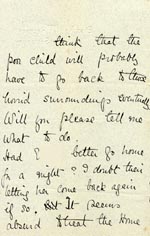 think that the
poor child will probably
have to go back to those
horrid surroundings eventually
Will you please tell me
what to do.
Had I better go home
for a night? I doubt their
letting her come back again
if so. It seems
absurd that the Home